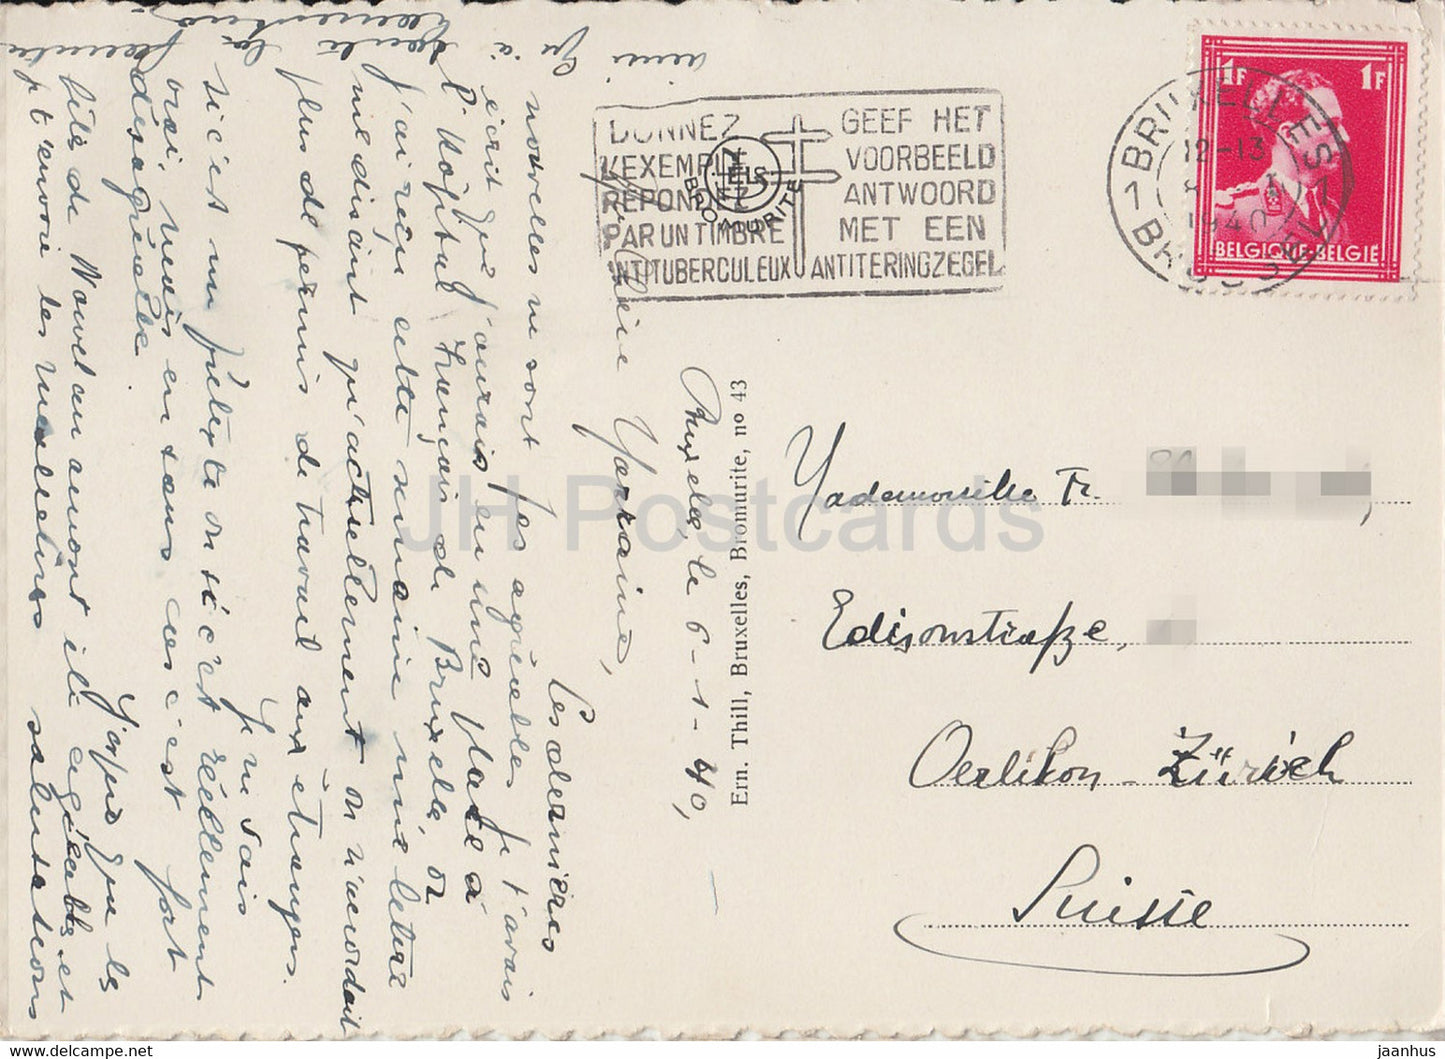 Bruxelles, le 6-1-40,
Ma Chérie Yarraine,
Les dernières
nouvelles ne sont pas agréables je t'avais
écrit que j'aurais eu une place à
l'hôpital français de Bruxelles, or
j'ai reçu cette semaine une lettre
me disant qu'actuellement on n'accordait
plus de permis de travail aux étrangers.
Je ne sais
si c'est un prétexte ou si c'est réellement
vrai, mais en tous cas c'est fort
désagréable.
J'espère que les
fêtes de Nouvel an auront été agréables et
je t'envoie les meilleures salutations
ainsi qu'à
DONNEZ
L'EXEMPLE
REPONDEZ
PAR UN TIMBRE
ANTITUBERCULEUX
GEEF HET
VOORBEELD
ANTWOORD
MET EEN
ANTITERINGZEGEL
NELS
BROMURITE
BRUXELLES
12-13
1940
BRUSSEL
1F 1F
BELGIQUE-BELGIË
Ern. Thill, Bruxelles, Bromurite, no 43
Mademoiselle Fr.
Edisonstraße,
Oerlikon-Zürich
Suisse
JH Postcards
jaanhus | https://www.jhpostcards.com